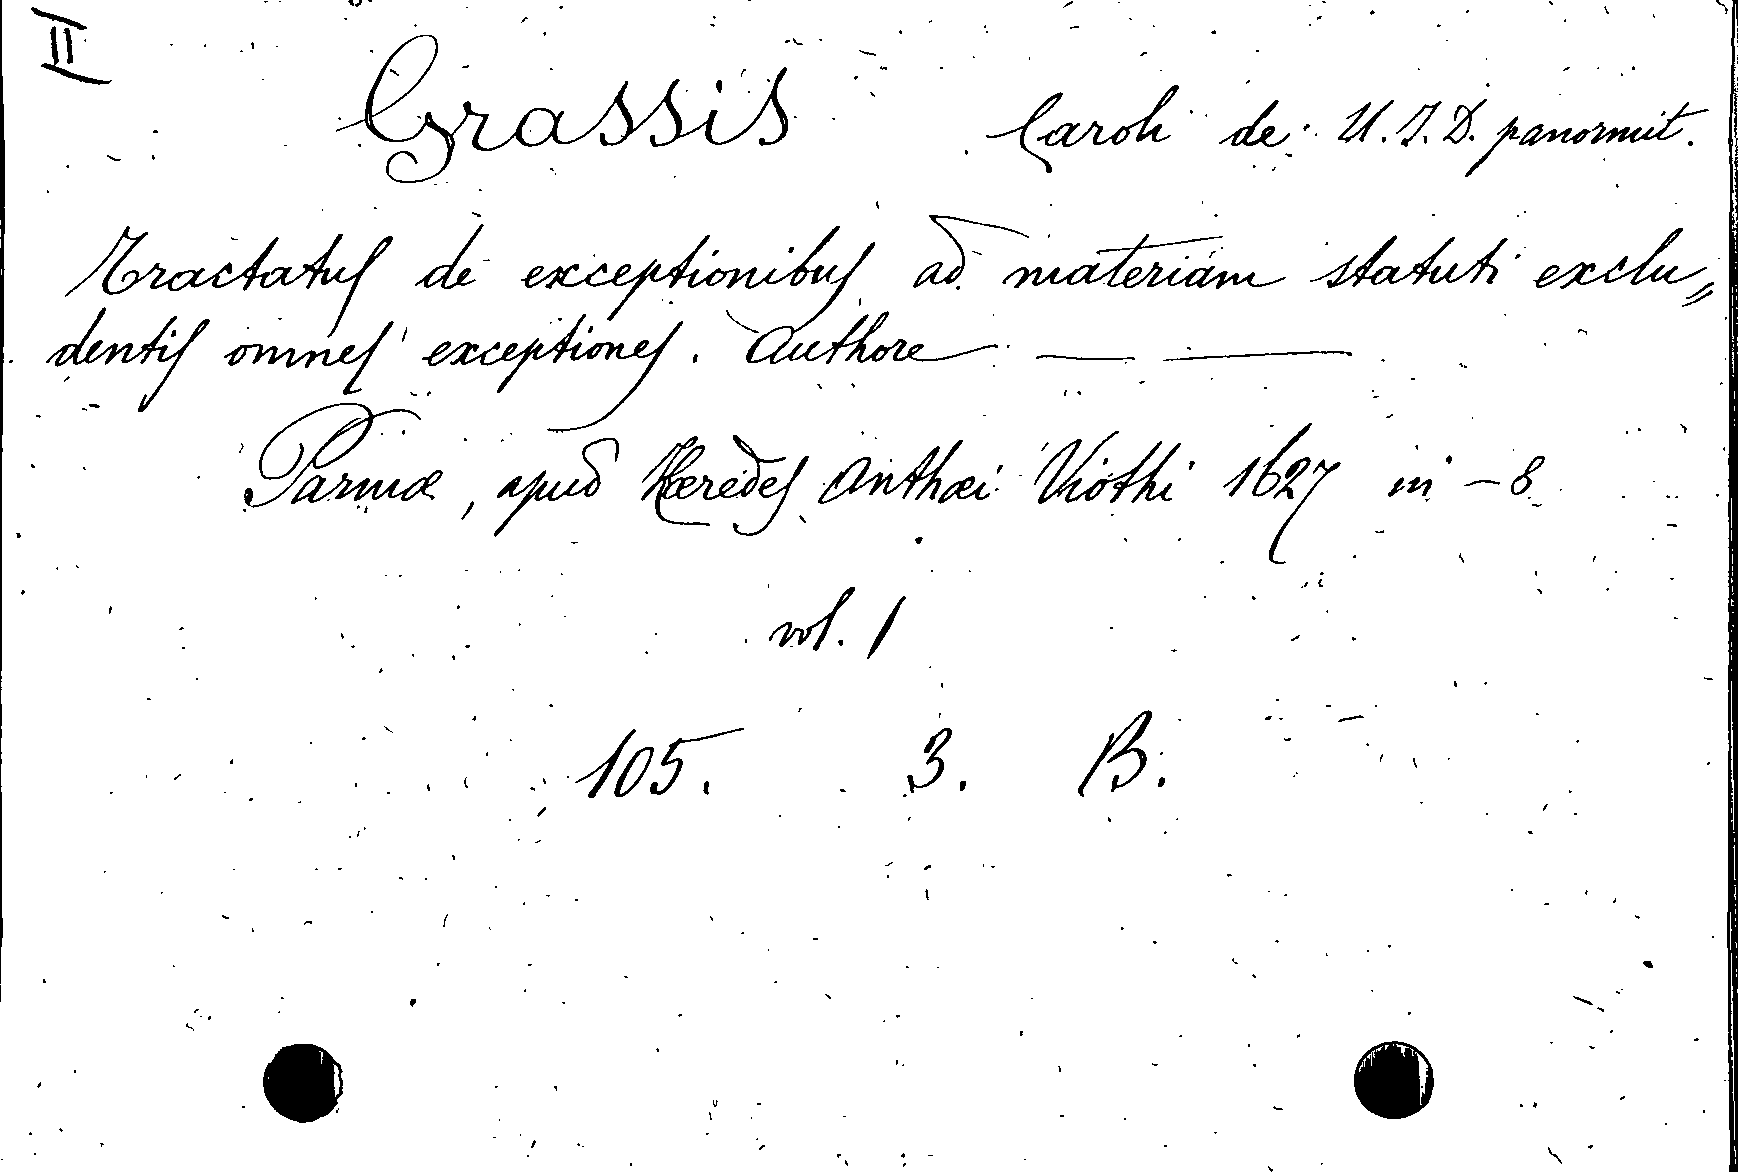 II
Grassis Caroli de U.J.D. panormit.
Tractatus de exceptionibus ad materiam statuti exclu„
dentis omnes exceptiones. Authore — —
Parmæ, apud Hæredes Anthæi Viothi 1627 in -8
vol. 1
105. 3. B.